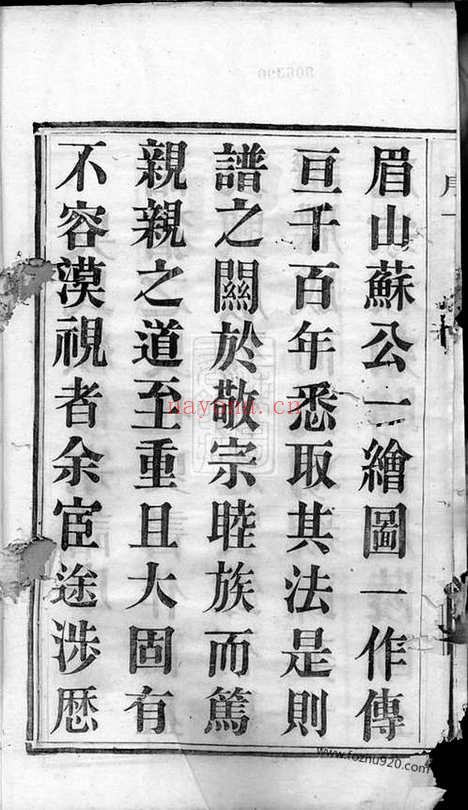 眉山蘇公一繪圖一作傳
亘千百年悉取其法是則
譜之關於敬宗睦族而篤
親親之道至重且大固有
不容漠視者余宦途涉歷
nayona.cn
www.fozhu920.com